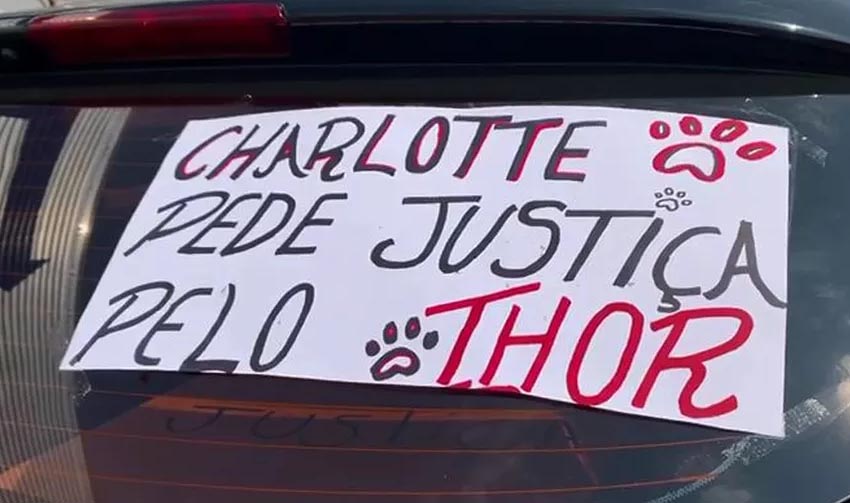 CHARLOTTE
PEDE JUSTIÇA
PELO THOR
JUSTIÇA